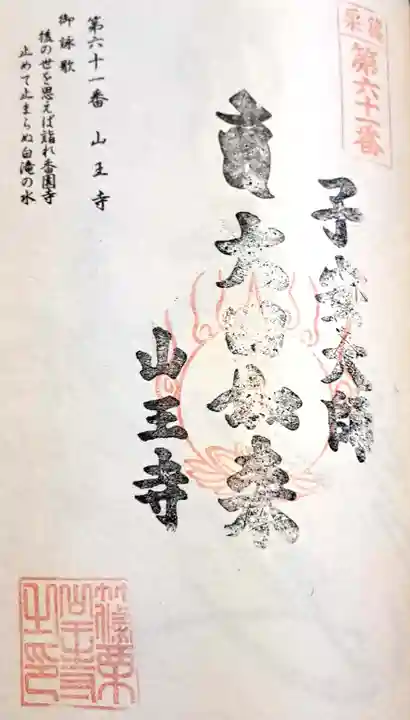 篠栗
第六十一番
子安大師
奉 大日如来
山王寺
第六十一番 山王寺
御詠歌
後の世を思えば詣れ香園寺
止めて止まらぬ白滝の水
篠栗山王寺之印